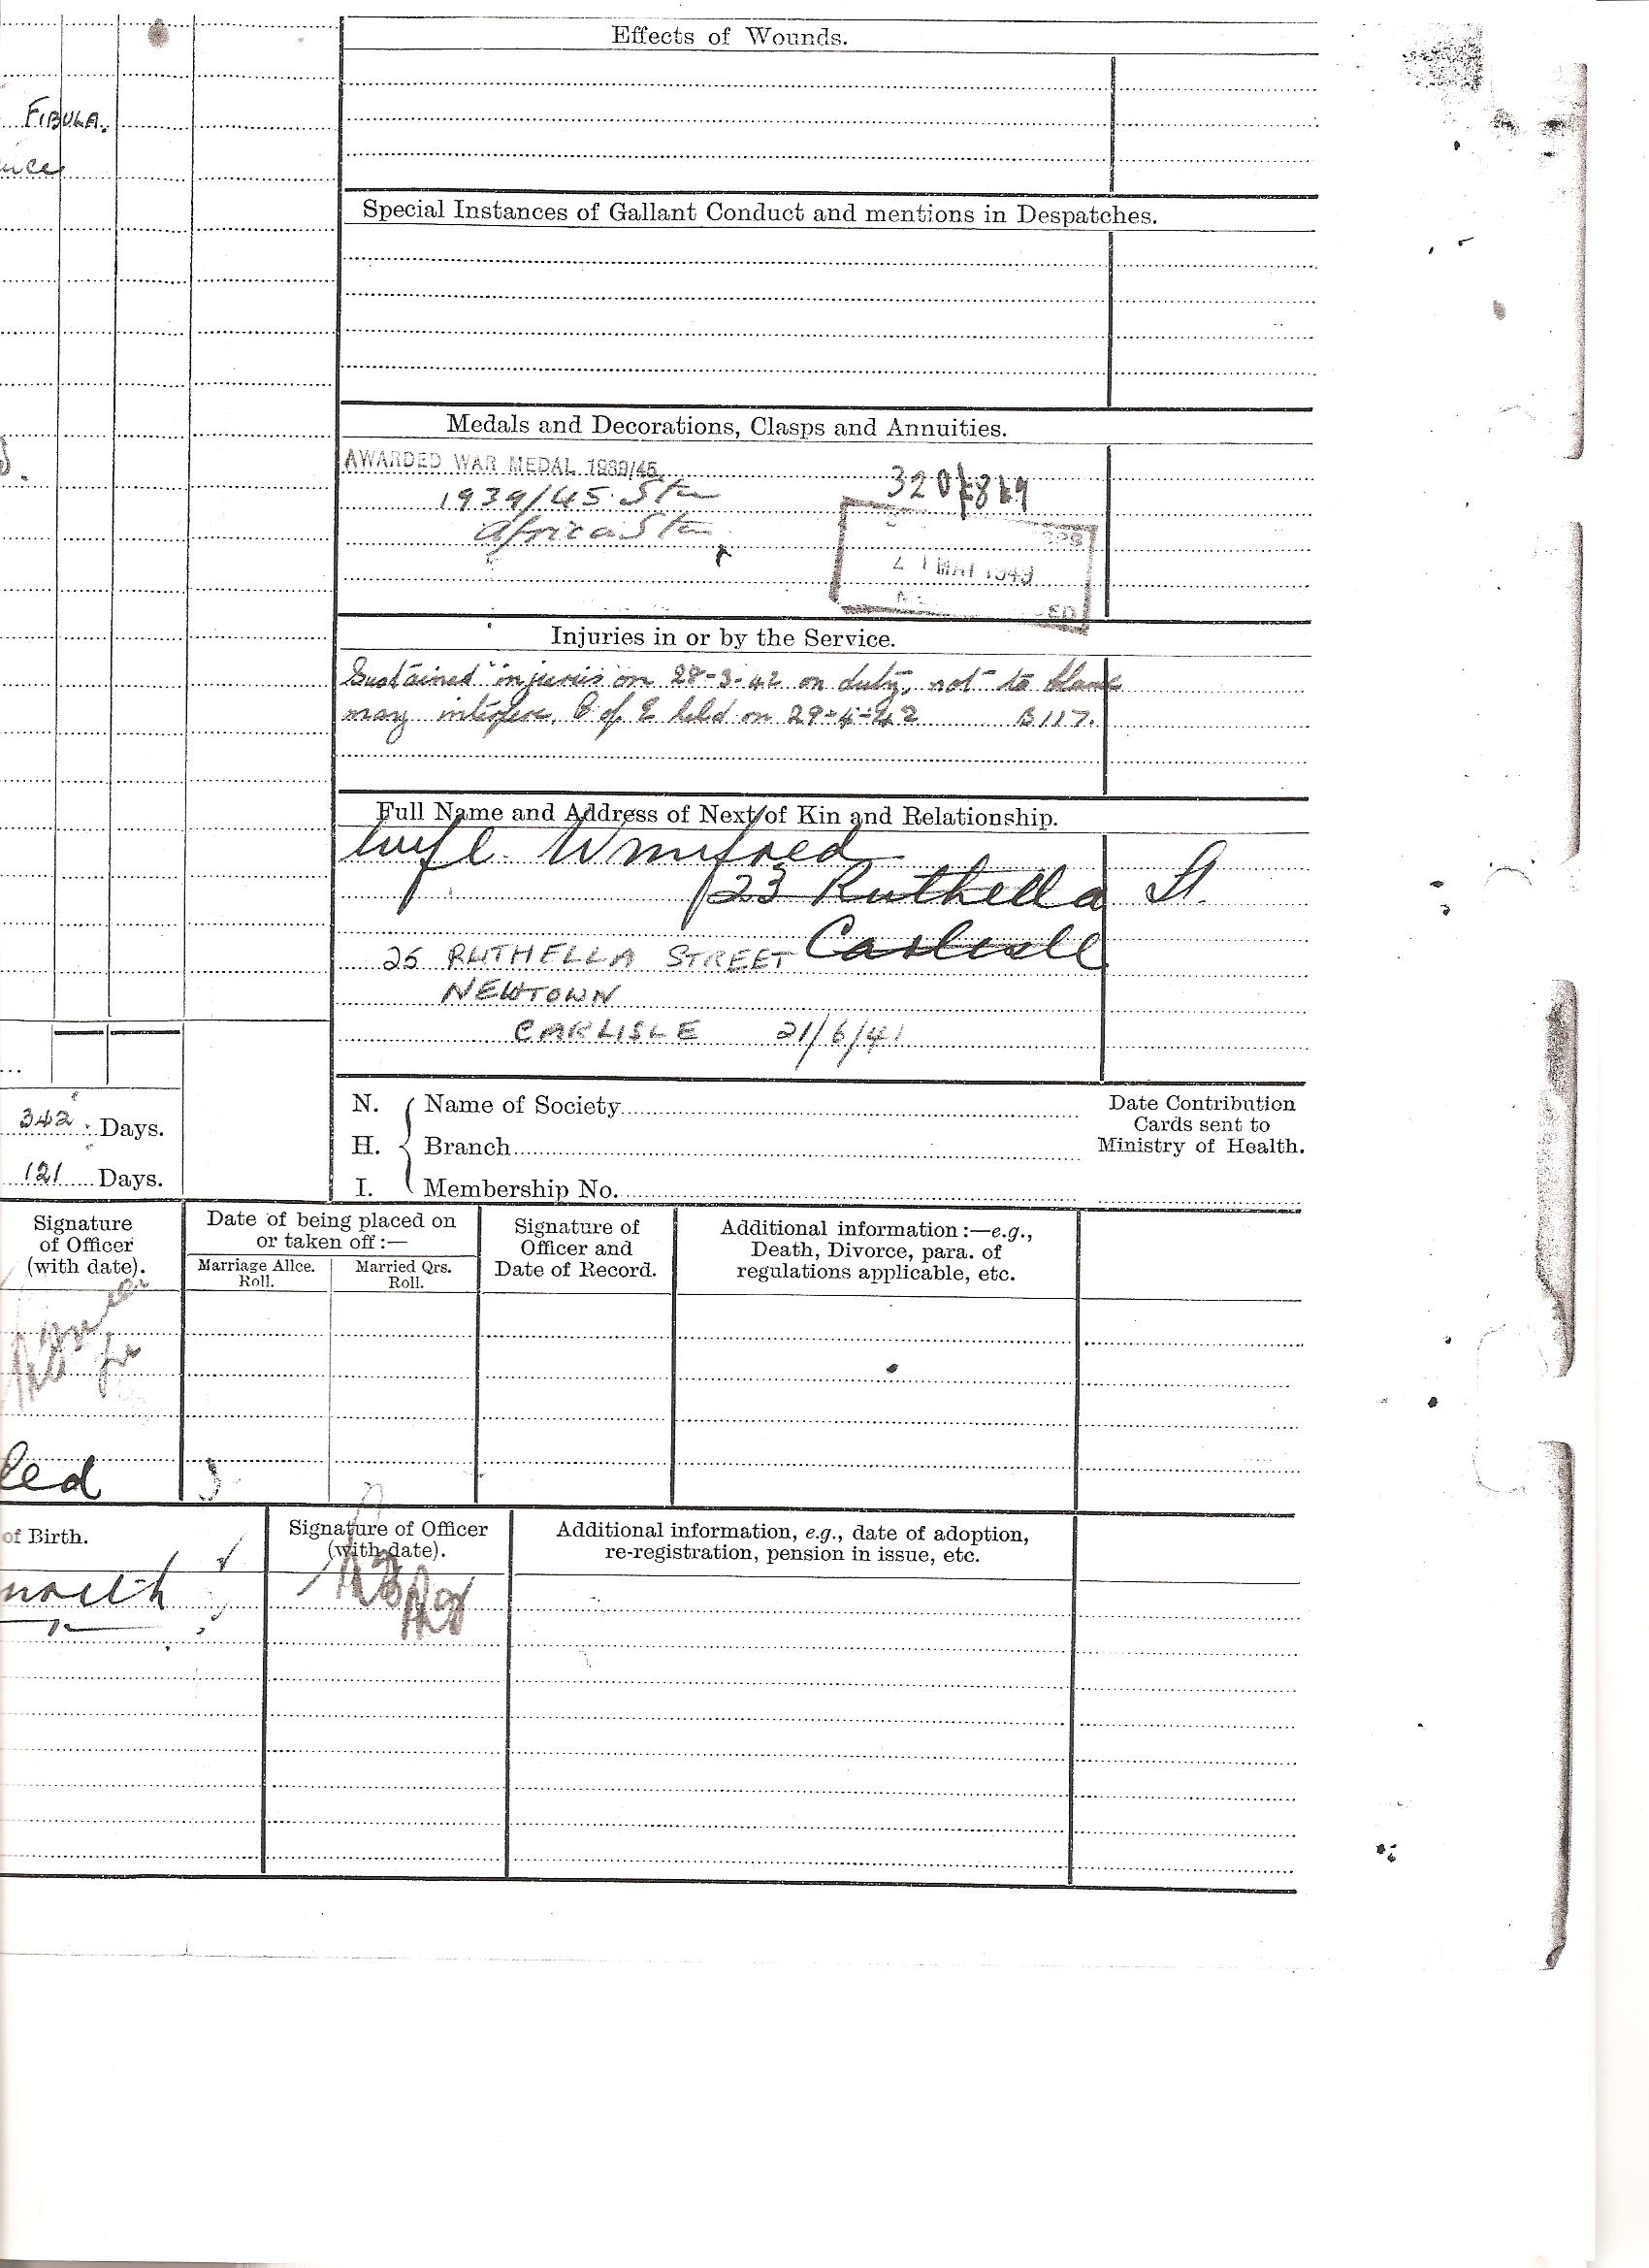 Effects of Wounds.
FIBULA.
Special Instances of Gallant Conduct and mentions in Despatches.
Medals and Decorations, Clasps and Annuities.
AWARDED WAR MEDAL 1939/45
1939/45 Star
Africa Star
Injuries in or by the Service.
Sustained injuries on 28-3-42 on duty, not to blame
may interfere. C of E held on 29-4-42 B117.
Full Name and Address of Next of Kin and Relationship.
Wife Winifred
23 Ruthella St.
Carlisle
25 RUTHELLA STREET
NEWTOWN
CARLISLE 21/6/41
342 Days.
121 Days.
N. H. I.
Name of Society
Branch
Membership No.
Date Contribution
Cards sent to
Ministry of Health.
Signature
of Officer
(with date).
Date of being placed on
or taken off:—
Marriage Allce.
Roll.
Married Qrs.
Roll.
Signature of
Officer and
Date of Record.
Additional information:—e.g.,
Death, Divorce, para. of
regulations applicable, etc.
of Birth.
Signature of Officer
(with date).
Additional information, e.g., date of adoption,
re-registration, pension in issue, etc.